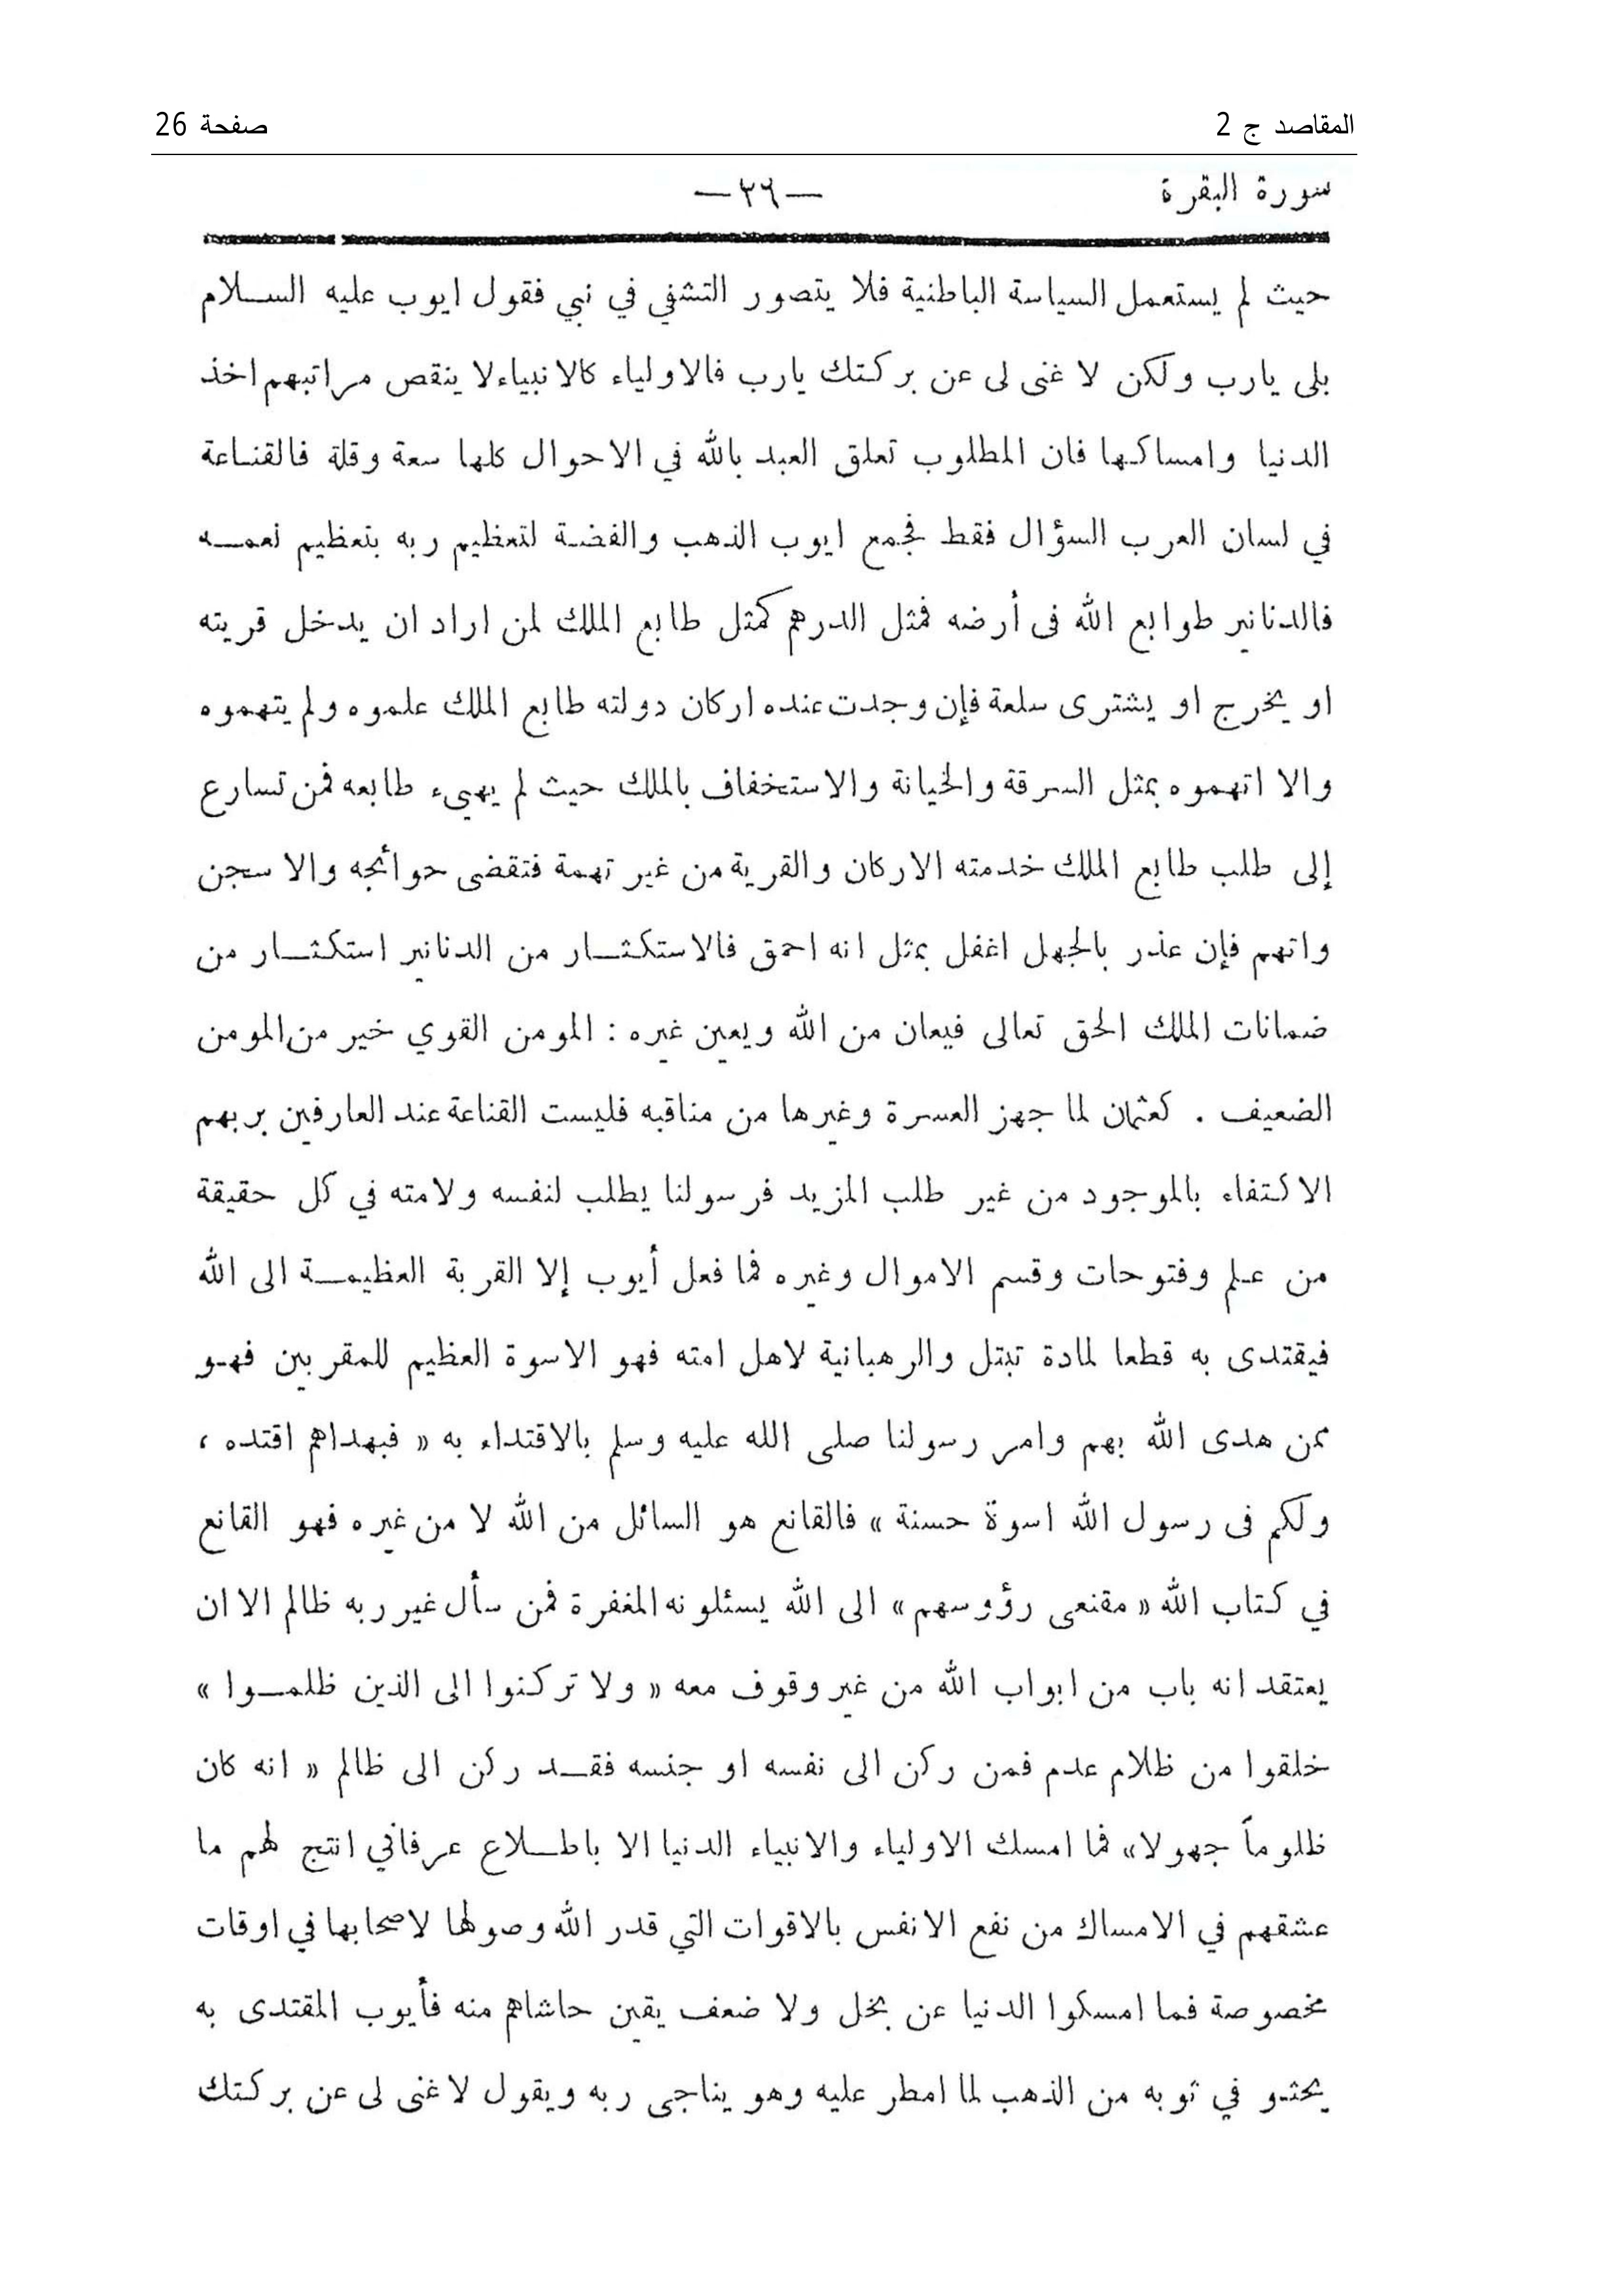 المقاصد ج 2
صفحة 26
سورة البقرة
—٢٦—
حيث لم يستعمل السياسة الباطنية فلا يتصور التشفي في نبي فقول ايوب عليه السلام
بلى يارب ولكن لا غنى لى عن بركتك يارب فالاولياء كالانبياء لا ينقص مراتبهم اخذ
الدنيا وامساكها فان المطلوب تعلق العبد بالله في الاحوال كلها سعة وقلة فالقناعة
في لسان العرب السؤال فقط فجمع ايوب الذهب والفضة لتعظيم ربه بتعظيم نعمه
فالدنانير طوابع الله فى أرضه فمثل الدرهم كمثل طابع الملك لمن اراد ان يدخل قريته
او يخرج او يشترى سلعة فإن وجدت عنده اركان دولته طابع الملك علموه ولم يتهموه
والا اتهموه بمثل السرقة والخيانة والاستخفاف بالملك حيث لم يهيء طابعه فمن تسارع
إلى طلب طابع الملك خدمته الاركان والقرية من غير تهمة فتقضى حوائجه والا سجن
واتهم فإن عذر بالجهل اغفل بمثل انه احمق فالاستكثار من الدنانير استكثار من
ضمانات الملك الحق تعالى فيعان من الله ويعين غيره : المومن القوي خير من المومن
الضعيف . كعثمان لما جهز العسرة وغيرها من مناقبه فليست القناعة عند العارفين بربهم
الاكتفاء بالموجود من غير طلب المزيد فرسولنا يطلب لنفسه ولامته في كل حقيقة
من علم وفتوحات وقسم الاموال وغيره فما فعل أيوب إلا القربة العظيمة الى الله
فيقتدى به قطعا لمادة تبتل والرهبانية لاهل امته فهو الاسوة العظيم للمقربين فهو
ممن هدى الله بهم وامر رسولنا صلى الله عليه وسلم بالاقتداء به « فبهداهم اقتده ،
ولكم فى رسول الله اسوة حسنة » فالقانع هو السائل من الله لا من غيره فهو القانع
في كتاب الله « مقنعى رؤوسهم » الى الله يسئلونه المغفرة فمن سأل غير ربه ظالم الا ان
يعتقد انه باب من ابواب الله من غير وقوف معه « ولا تركنوا الى الذين ظلموا »
خلقوا من ظلام عدم فمن ركن الى نفسه او جنسه فقد ركن الى ظالم « انه كان
ظلوماً جهولا» فما امسك الاولياء والانبياء الدنيا الا باطلاع عرفاني انتج لهم ما
عشقهم في الامساك من نفع الانفس بالاقوات التي قدر الله وصولها لاصحابها في اوقات
مخصوصة فما امسكوا الدنيا عن بخل ولا ضعف يقين حاشاهم منه فأيوب المقتدى به
يحثو في ثوبه من الذهب لما امطر عليه وهو يناجى ربه ويقول لا غنى لى عن بركتك